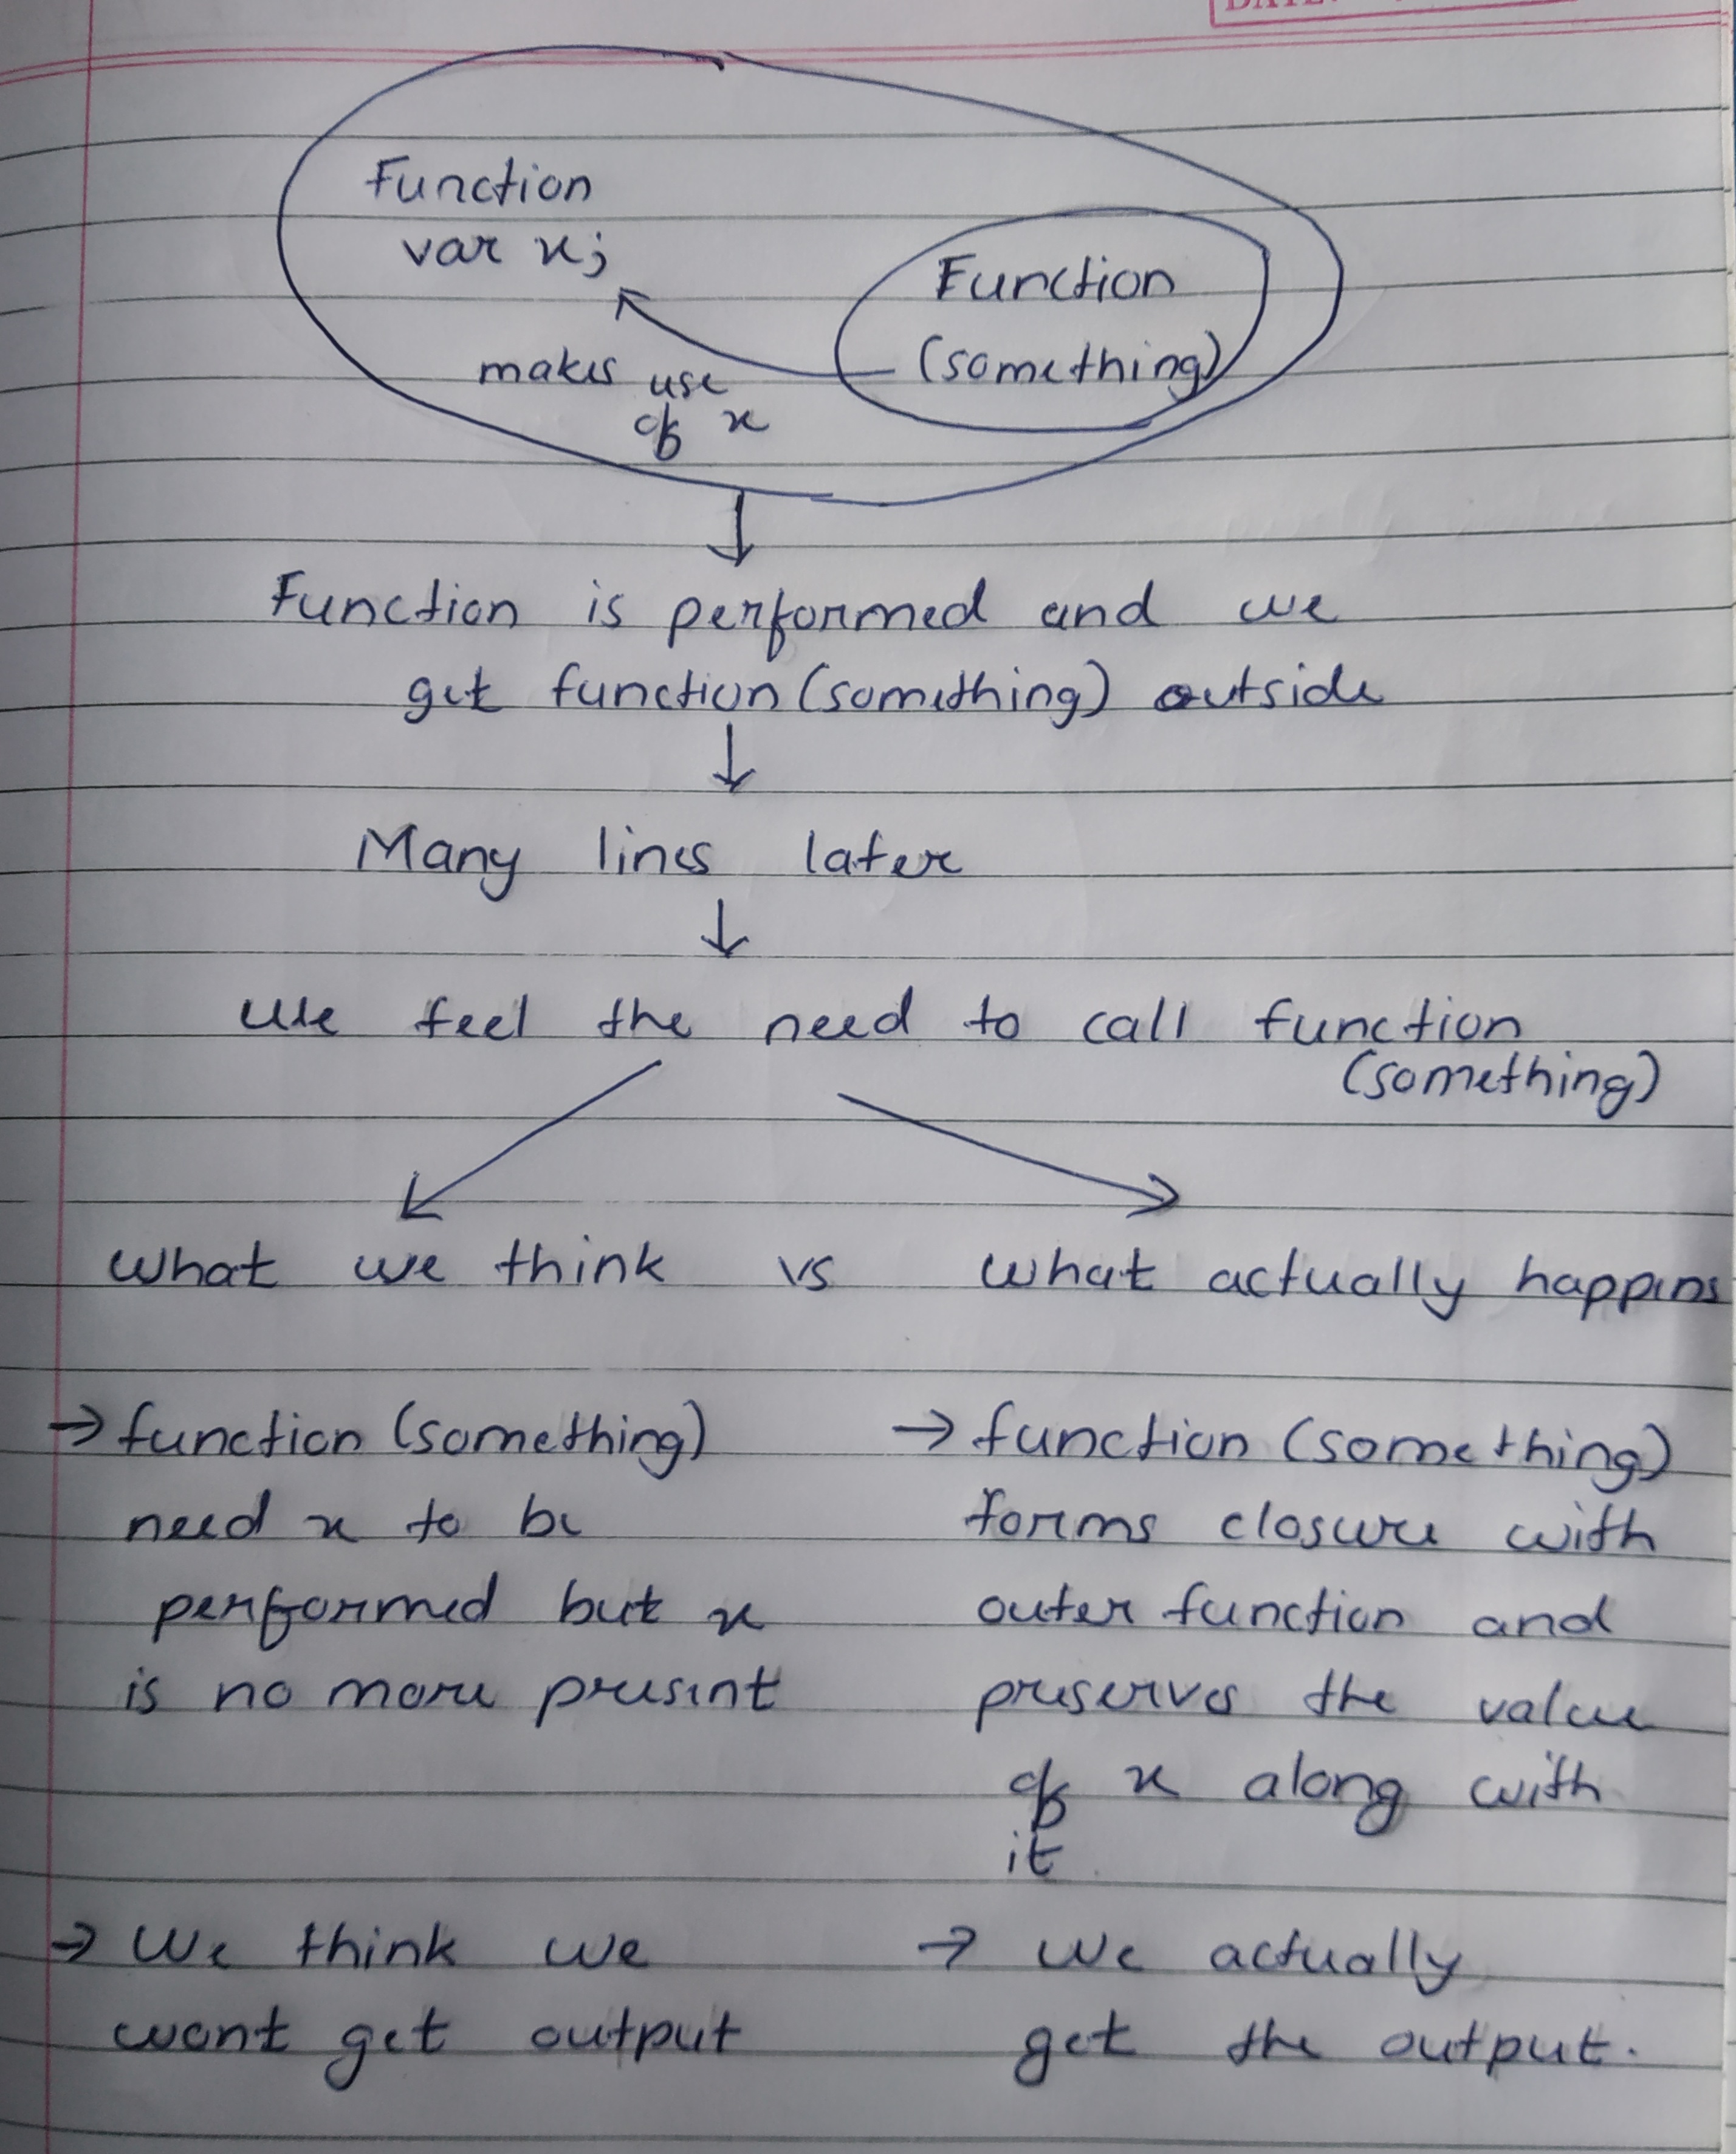 Function
var x;
Function
(something)
makes use
of x
Function is performed and we
get function (something) outside
Many lines later
We feel the need to call function
(something)
What we think vs What actually happens
→ function (something)
need x to be
performed but x
is no more present
→ We think we
wont get output
→ function (something)
forms closure with
outer function and
preserves the value
of x along with
it
→ We actually
get the output.